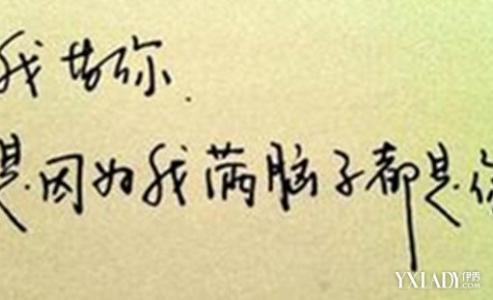 我梦你.
是因为我满脑子都是你
YXLADY伊秀
.COM